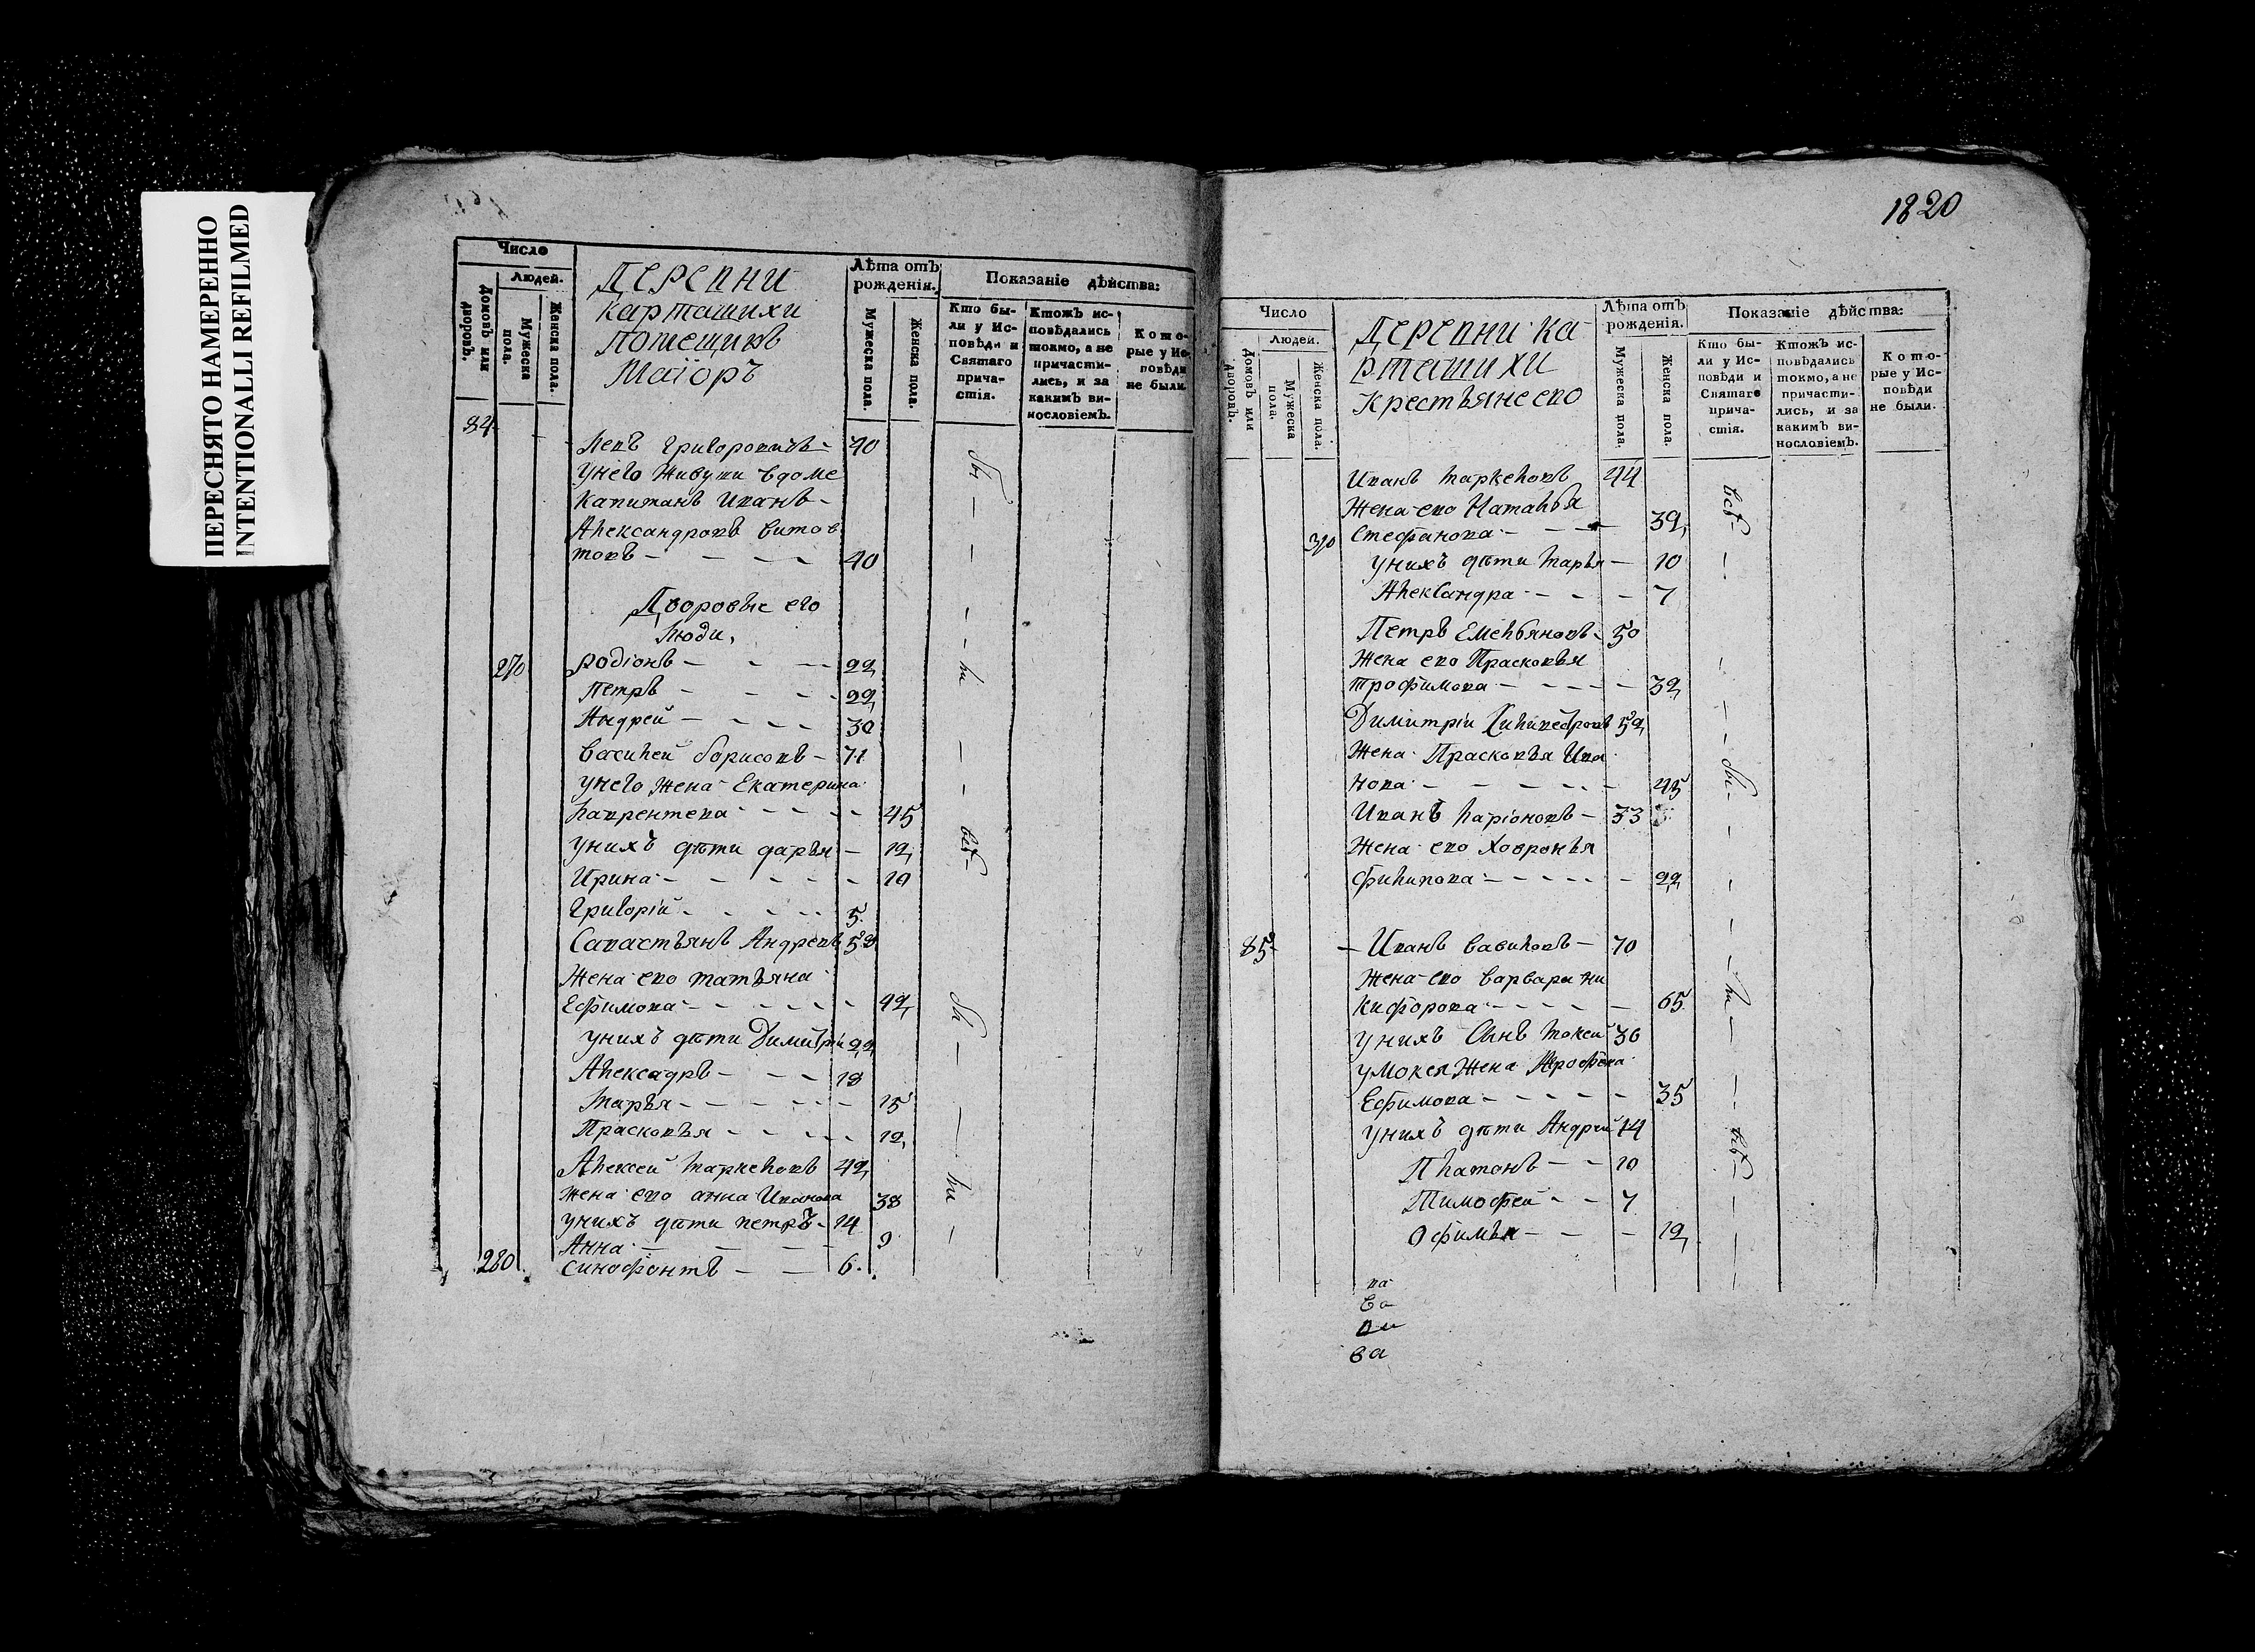 ПЕРЕСНЯТО НАМЕРЕННО
INTENTIONALLI REFILMED
Число
Людей.
Домовъ или дворовъ.
Мужеска пола.
Женска пола.
Деревни
карташихи
Помещикъ
Маіоръ
Лѣта отъ рожденія.
Мужеска пола.
Женска пола.
Показаніе дѣйства:
Кто были у Исповѣди и Святаго причастія.
Ктожъ исповѣдались токмо, а не причастились, и за какимъ винословіемъ.
Которые у Исповѣди не были.
84
Левъ Григоровичъ — 40
унего живучи вдоме
Капитанъ Иванъ —
Александровъ
товъ — — — — 40
Дворовые его
Люди,
270 Родіонъ — — — 22
Петръ — — — 22
Андрей — — — — 30
Василей борисовъ — 71
унего жена Екатерина
Лаврентева — — — 45
унихъ дѣти дарья — 12
Ирина — — — — — 10
Григорій — — — 5
Савастьянъ Андреевъ 58
Жена его татьяна
Ефимова — — — — 42
унихъ дѣти Димитрій 22
Алексадръ — — — 18
Марья — — — — — 15
Прасковья — — — — 12
Алексей Маркеловъ 42
жена его анна Иванова 38
унихъ дѣти петръ — 14
Анна — — — — 9
280 Синофонтъ — — 6
1820
Число
Людей.
Домовъ или дворовъ.
Мужеска пола.
Женска пола.
Деревни ка
рташихи
Крестьяне его
Лѣта отъ рожденія.
Мужеска пола.
Женска пола.
Показаніе дѣйства:
Кто были у Исповѣди и Святаго причастія.
Ктожъ исповѣдались токмо, а не причастились, и за какимъ винословіемъ.
Которые у Исповѣди не были.
Иванъ Маркеловъ 44
Жена его Наталья
310 Стефанова — — — 39
унихъ дѣти Марья — 10
Александра — — — 7
Петръ Емельяновъ — 50
Жена его Прасковья
Трофимова — — — — 32
Димитрій 52
Жена Прасковья Ива
нова — — — — — 45
Иванъ Ларіоновъ — 33
Жена его Ховронья
филипова — — — — — 22
85 — Иванъ Савиловъ — 70
Жена его варвара ни
кифорова — — — — 65
унихъ Сынъ Мокеи 36
умокея Жена
Ефимова — — — — — 35
унихъ дѣти Андрей 14
Платонъ — — 10
Тимофеи — — 7
Офимья — — — 12
ва
ва
ви
ва